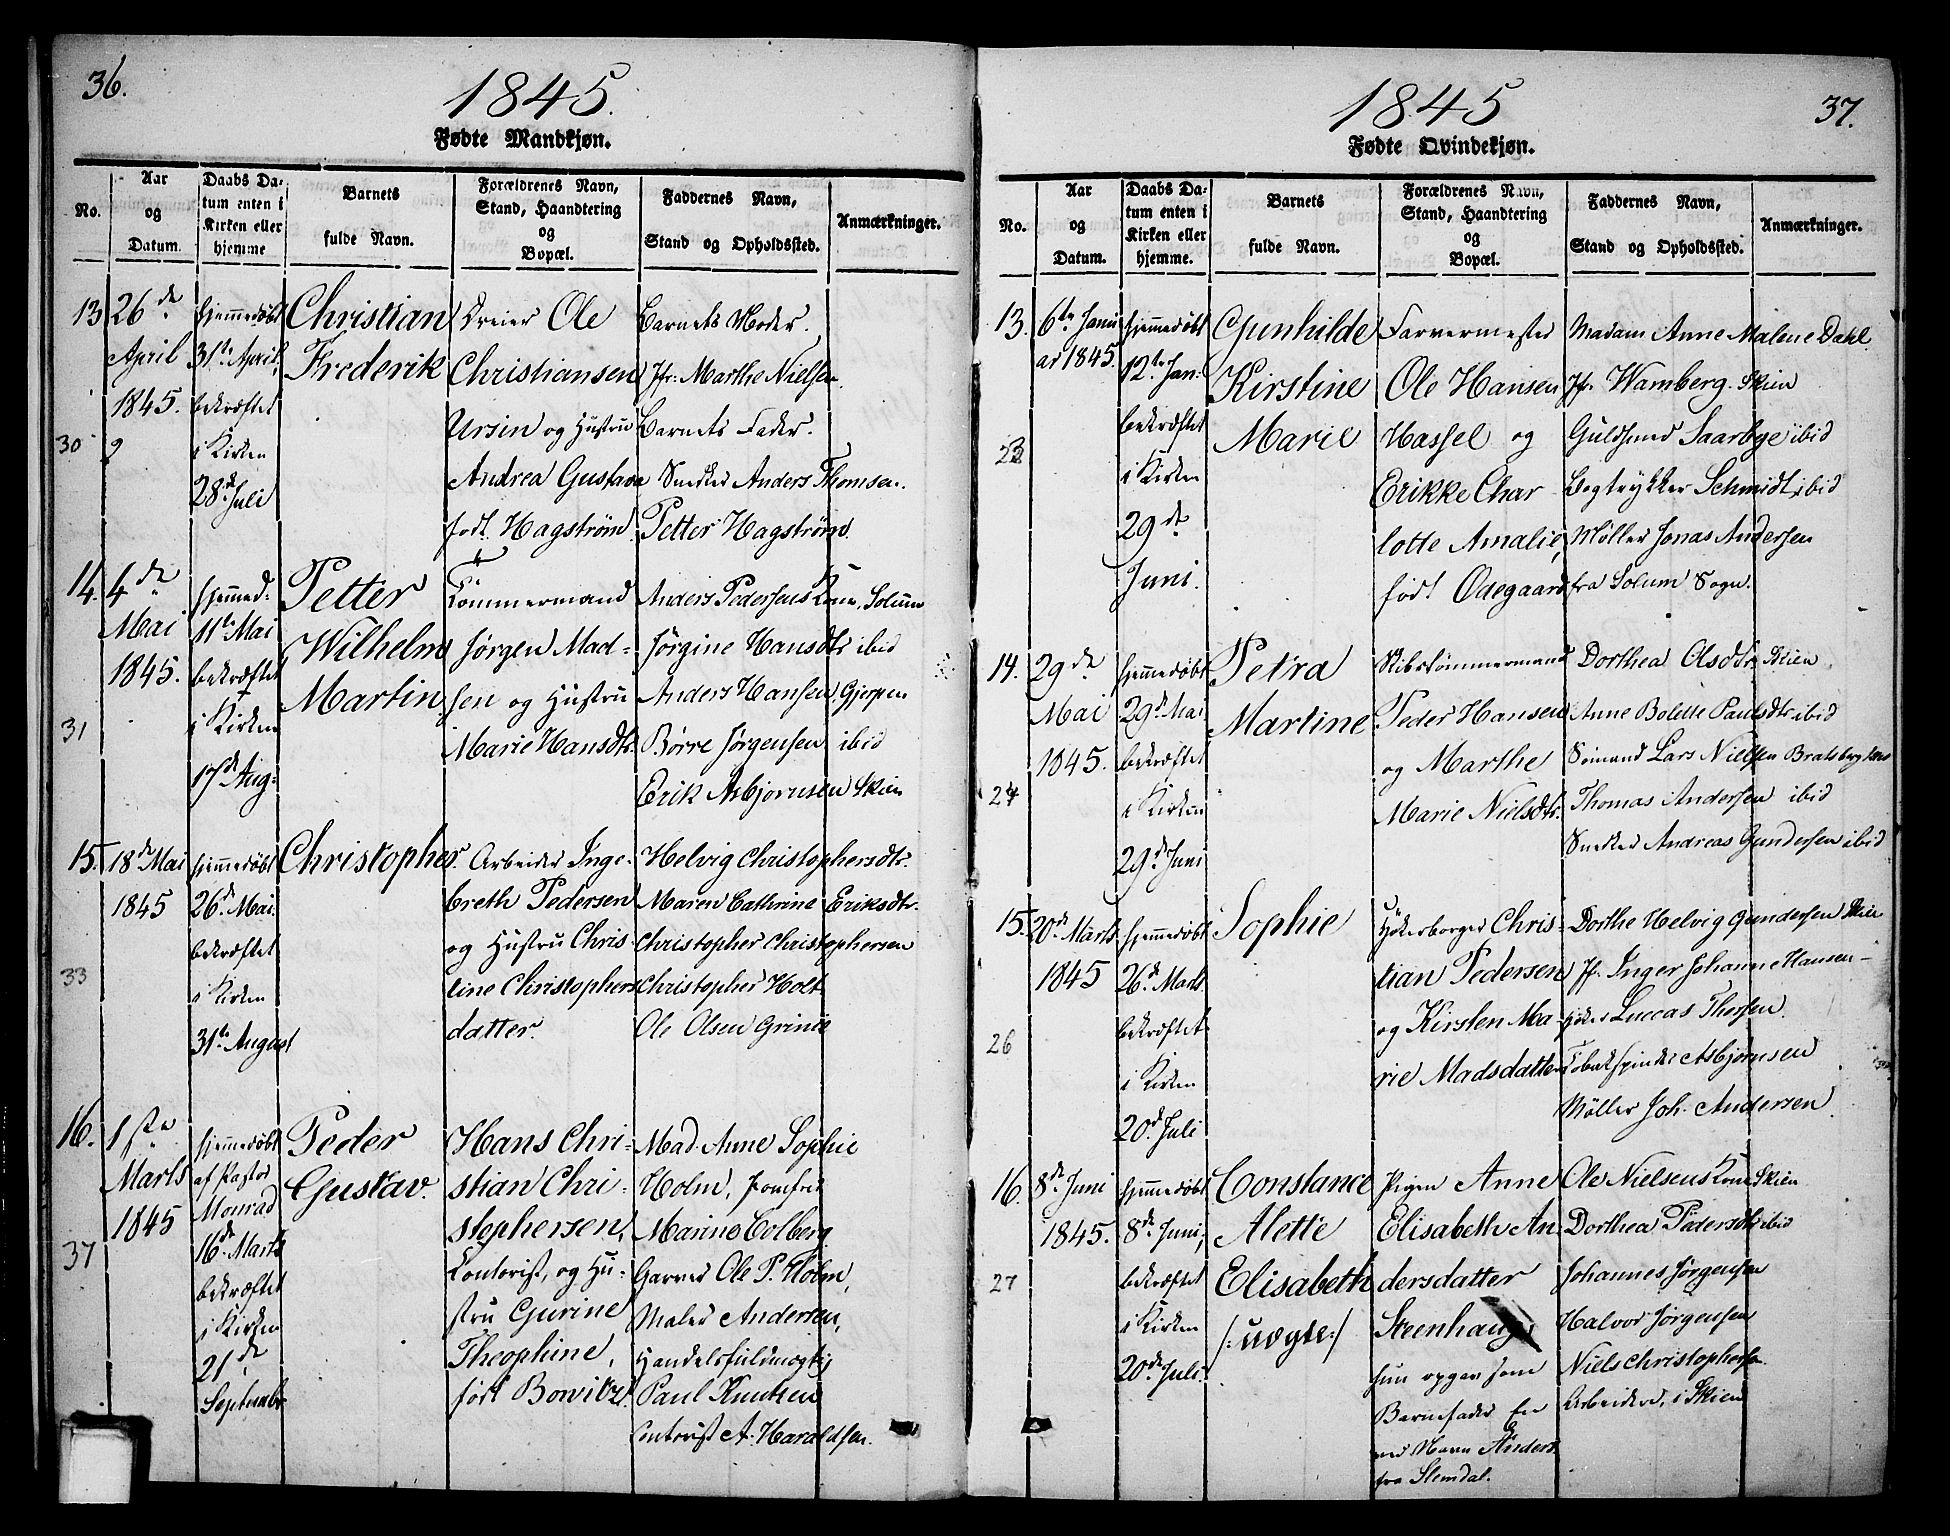 36.
1845.
Fødte Mandkjøn.
No.
Aar
og
Datum.
Daabs Da-
tum enten i
Kirken eller
hjemme
Barnets
fulde Navn.
Forældrenes Navn,
Stand, Haandtering
og
Bopæl.
Faddernes Navn,
Stand og Opholdssted.
Anmærkninger.
13
26de
April
1845.
30
hjemmedøbt
31te April,
bekræftet
i Kirken
28de Juli
Christian
Frederik
Dreier Ole
Christiansen
Ursin og Hustru
Andrea Gustava
født Hagstrøm.
Barnets Moder.
Jfr. Marthe Nielsen.
Barnets Fader.
Snedker Anders Thomsen.
Petter Hagstrøm.
14.
4de
Mai
1845.
31
hjemmed-
11te Mai
bekræftet
i Kirken
17de Aug-
Petter
Wilhelm
Martin
Tømmermand
Jørgen Mad-
sen og Hustru
Marie Hansdtr.
Anders Pedersens Kone, Solum
Jørgine Hansdtr ibid
Anders Hansen, Gjerpen
Børre Jørgensen ibid
Erik Asbjørnsen Skien
15.
18de Mai
1845
33
hjemmedøbt
26de Mai.
bekræftet
i Kirken
31te August
Christopher.
Arbeider Inge-
breth Pedersen
og Hustru Chris
tine Christophers
datter.
Helvig Christophersdtr.
Maren Cathrine Eriksdtr.
Christopher Christophersen
Christopher Holt
Ole Olsen Grinie
16.
1ste
Marts
1845
37
hjemmedøbt
af Pastor
Monrad
16de Marts
bekræftet
i Kirken
21de
September
Peder
Gustav.
Hans Chri-
stian Chri-
stophersen,
Contorist, og Hu-
stru Gurine
Theophine,
født Bowitz.
Mad. Anne Sophie
Holm, Jomfru
Marine Colberg.
Garver Ole P. Holm,
Maler Andersen,
Handelsfuldmægtig
Paul Knutzen
Contorist A. Haraldsen.
37.
1845
Fødte Qvindekjøn.
No.
Aar
og
Datum.
Daabs Da-
tum enten i
Kirken eller
hjemme.
Barnets
fulde Navn.
Forældrenes Navn,
Stand, Haandtering
og
Bopæl.
Faddernes Navn,
Stand og Opholdssted.
Anmærkninger.
13.
6te Janu
ar 1845.
hjemmedøbt
12te Jan:
bekræftet
i Kirken
29de
Juni.
Gunhilde
Kirstine
Marie
Farvermester
Ole Hansen
Hassel og
Erikke Char
lotte Amalie,
født Ødegaard
Madam Anne Malene Dahl
Jfr. Wamberg. Skien
Guldsmed Saarbye ibid
Bogtrykker Schmidt, ibid
Møller Jonas Andersen
fra Solum Sogn.
14.
29de
Mai
1845.
24
hjemmedøbt
29de Mai
bekræftet
i Kirken
29de Juni
Petra
Martine
Skibstømmermand
Peder Hansen
og Marthe
Marie Nielsdtr.
Dorthea Olsdtr. Skien
Anne Bolette Paulsdtr. ibid
Sømand Lars Nielsen Bratsberg
Thomas Andersen ibid
Snedker Andreas Gundersen ibid
15.
20de Marts
1845
26
hjemmedøbt
26de Marts
bekræftet
i Kirken
20de Juli
Sophie
Høkerborger Chris-
tian Pedersen
og Kirsten Ma-
rie Madsdatter
Dorthe Helvig Gundersen Skien
Jfr. Inger Johanne Hansen-
Høker Luccas Thorsen.
Tobakspinder Asbjørnsen
Møller Joh. Andersen.
16.
8de Juni
1845.
27
hjemmedøbt
8de Juni,
bekræftet
i Kirken
20de Juli.
Constance
Alette
Elisabeth
/: uægte :/
Pigen Anne
Elisabeth An
dersdatter
Steenhaug,
hun opgav som
Barnefader En
ved Navn Anders
fra Slemdal.
Ole Nielsens Kone Skien
Dorthea Pedersdtr ibid
Johannes Jørgensen
Halvor Jørgensen
Niels Christophersen
Arbeidere, i Skien